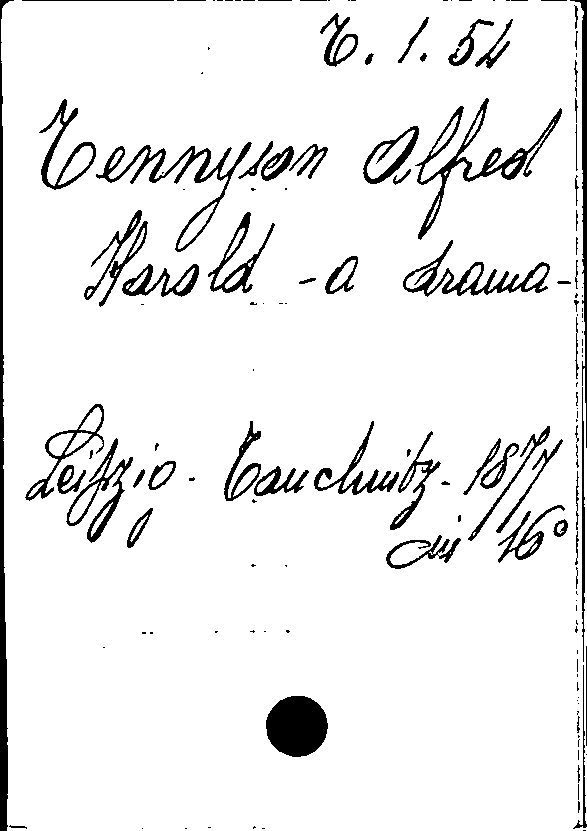 T. 1. 54
Tennyson Alfred
Harold - a drama -
Leipzig - Tauchnitz - 1877
in 16°